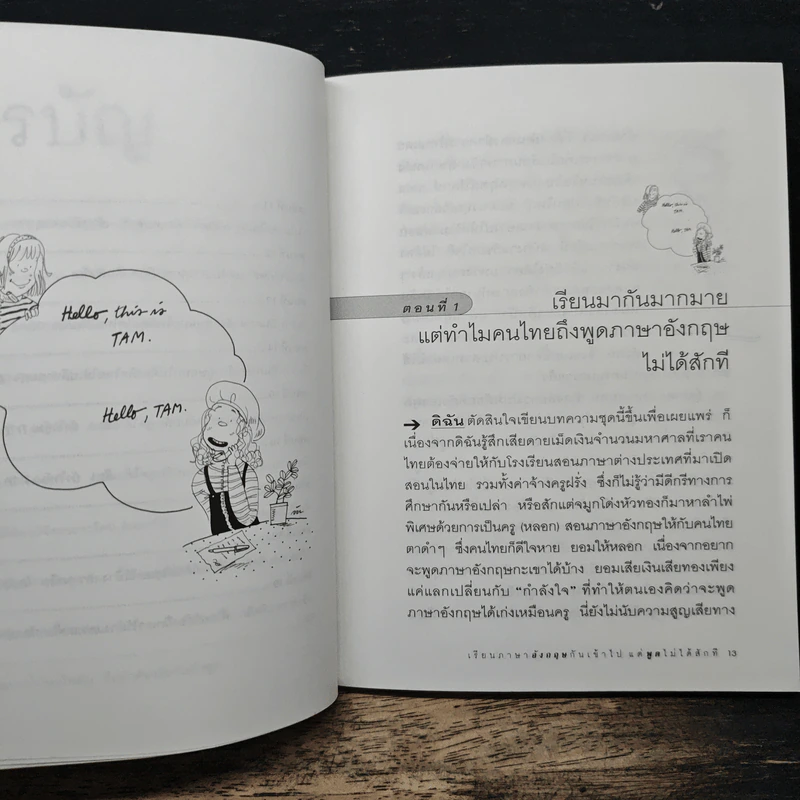 รบัญ
Hello, this is
TAM.
Hello, TAM.
Hello, this is
TAM.
Hello, TAM.
ตอนที่ 1
เรียนมากันมากมาย
แต่ทำไมคนไทยถึงพูดภาษาอังกฤษ
ไม่ได้สักที
➔ ดิฉัน ตัดสินใจเขียนบทความชุดนี้ขึ้นเพื่อเผยแพร่ ก็
เนื่องจากดิฉันรู้สึกเสียดายเม็ดเงินจำนวนมหาศาลที่เราคน
ไทยต้องจ่ายให้กับโรงเรียนสอนภาษาต่างประเทศที่มาเปิด
สอนในไทย รวมทั้งค่าจ้างครูฝรั่ง ซึ่งก็ไม่รู้ว่ามีดีกรีทางการ
ศึกษากันหรือเปล่า หรือสักแต่จมูกโด่งหัวทองก็มาหาลำไพ่
พิเศษด้วยการเป็นครู (หลอก) สอนภาษาอังกฤษให้กับคนไทย
ตาดำๆ ซึ่งคนไทยก็ดีใจหาย ยอมให้หลอก เนื่องจากอยาก
จะพูดภาษาอังกฤษกะเขาได้บ้าง ยอมเสียเงินเสียทองเพียง
แค่แลกเปลี่ยนกับ "กำลังใจ" ที่ทำให้ตนเองคิดว่าจะพูด
ภาษาอังกฤษได้เก่งเหมือนครู นี่ยังไม่นับความสูญเสียทาง
เรียนภาษาอังกฤษกันเข้าไป แต่พูดไม่ได้สักที 13